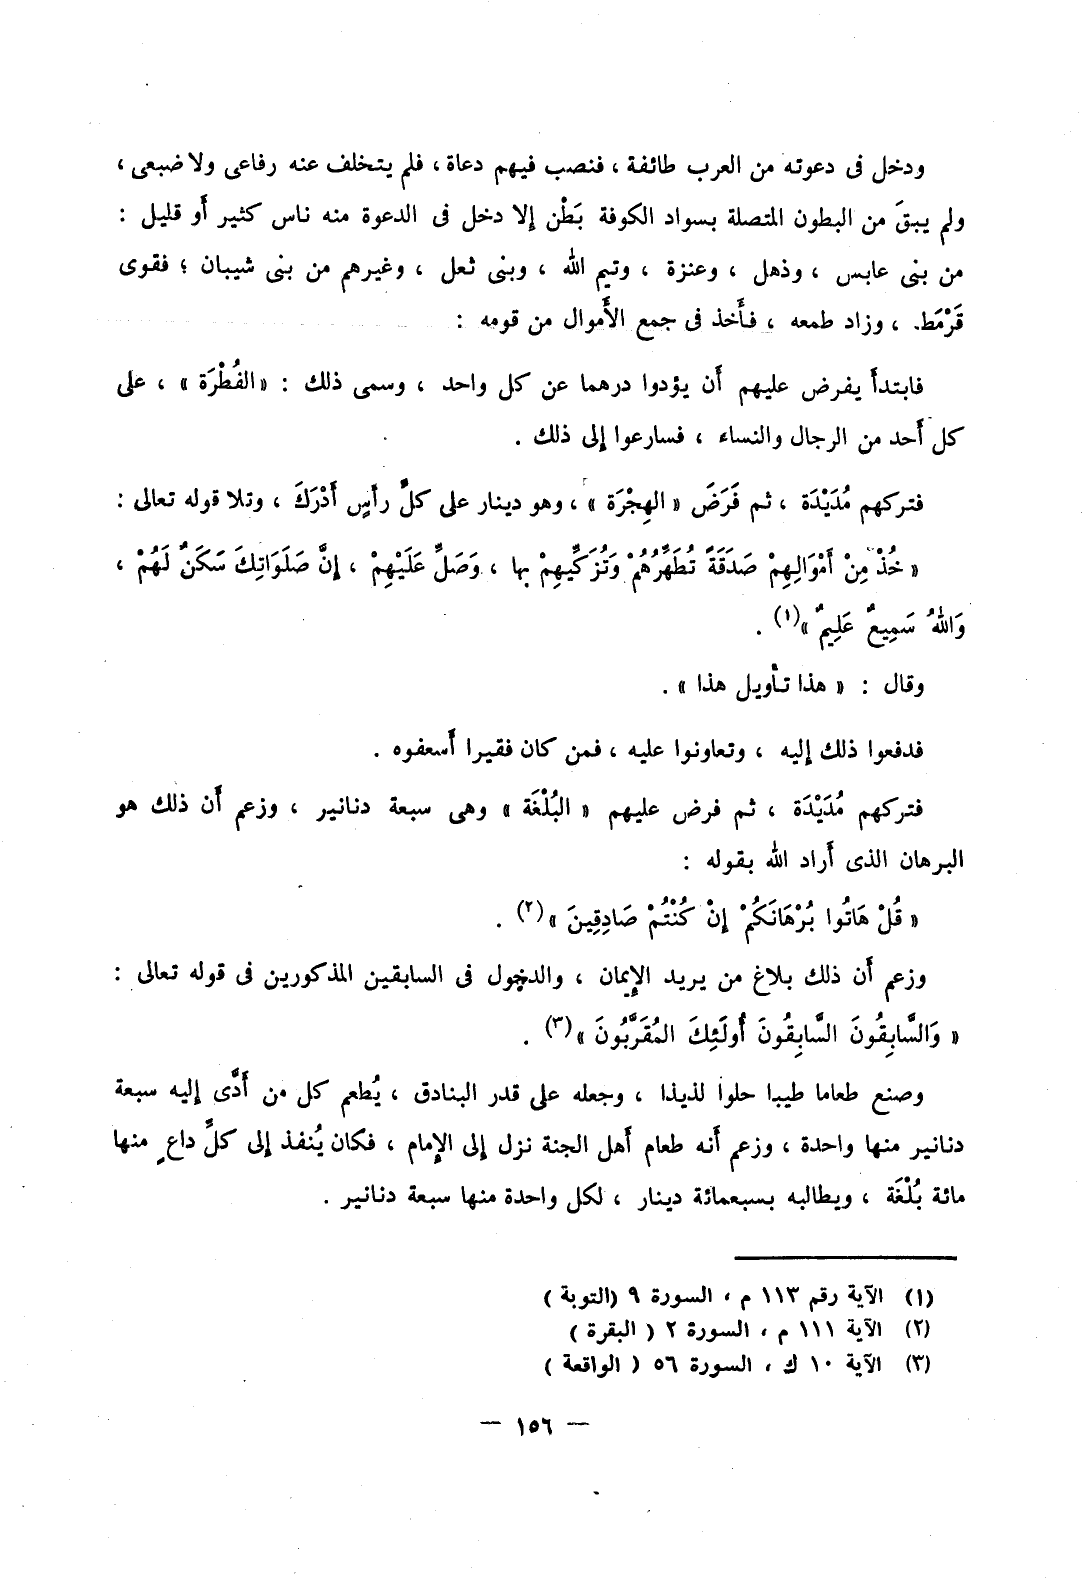 ودخل فى دعوته من العرب طائفة ، فنصب فيهم دعاة ، فلم يتخلف عنه رفاعى ولا ضبعى ،
ولم يبقَ من البطون المتصلة بسواد الكوفة بَطْن إلا دخل فى الدعوة منه ناس كثير أَو قليل :
من بنى عابس ، وذهل ، وعنزة ، وتيم الله ، وبنى ثعل ، وغيرهم من بنى شيبان ؛ فقوى
قَرْمَط ، وزاد طمعه ، فأَخذ فى جمع الأَموال من قومه :
فابتدأَ يفرض عليهم أَن يؤدوا درهما عن كل واحد ، وسمى ذلك : « الفُطْرَة » ، على
كل أَحد من الرجال والنساء ، فسارعوا إلى ذلك .
فتركهم مُدَيْدَة ، ثم فَرَضَ « الهِجْرَة » ، وهو دينار على كلِّ رأَسٍ أَدْرَكَ ، وتلا قوله تعالى :
« خُذْ مِنْ أَمْوَالِهِمْ صَدَقَةً تُطَهِّرُهُمْ وَتُزَكِّيهِمْ بها ، وَصَلِّ عَلَيْهِمْ ، إنَّ صَلَوَاتِكَ سَكَنٌ لَهُمْ ،
وَاللهُ سَمِيعٌ عَلِيمٌ »(١) .
وقال : « هذا تأَويل هذا » .
فدفعوا ذلك إليه ، وتعاونوا عليه ، فمن كان فقيرا أَسعفوه .
فتركهم مُدَيْدَة ، ثم فرض عليهم « البُلْغَة » وهى سبعة دنانير ، وزعم أَن ذلك هو
البرهان الذى أَراد الله بقوله :
« قُلْ هَاتُوا بُرْهَانَكُمْ إِنْ كُنْتُمْ صَادِقِينَ »(٢) .
وزعم أَن ذلك بلاغ من يريد الإِيمان ، والدخول فى السابقين المذكورين فى قوله تعالى :
« وَالسَّابِقُونَ السَّابِقُونَ أُولَئِكَ المُقَرَّبُونَ »(٣) .
وصنع طعاما طيبا حلوا لذيذا ، وجعله على قدر البنادق ، يُطعم كل من أَدَّى إليه سبعة
دنانير منها واحدة ، وزعم أَنه طعام أَهل الجنة نزل إلى الإِمام ، فكان يُنفذ إلى كلِّ داعٍ منها
مائة بُلْغَة ، ويطالبه بسبعمائة دينار ، لكل واحدة منها سبعة دنانير .
(١) الآية رقم ١١٣ م ، السورة ٩ (التوبة )
(٢) الآية ١١١ م ، السورة ٢ ( البقرة )
(٣) الآية ١٠ ك ، السورة ٥٦ ( الواقعة )
— ١٥٦ —